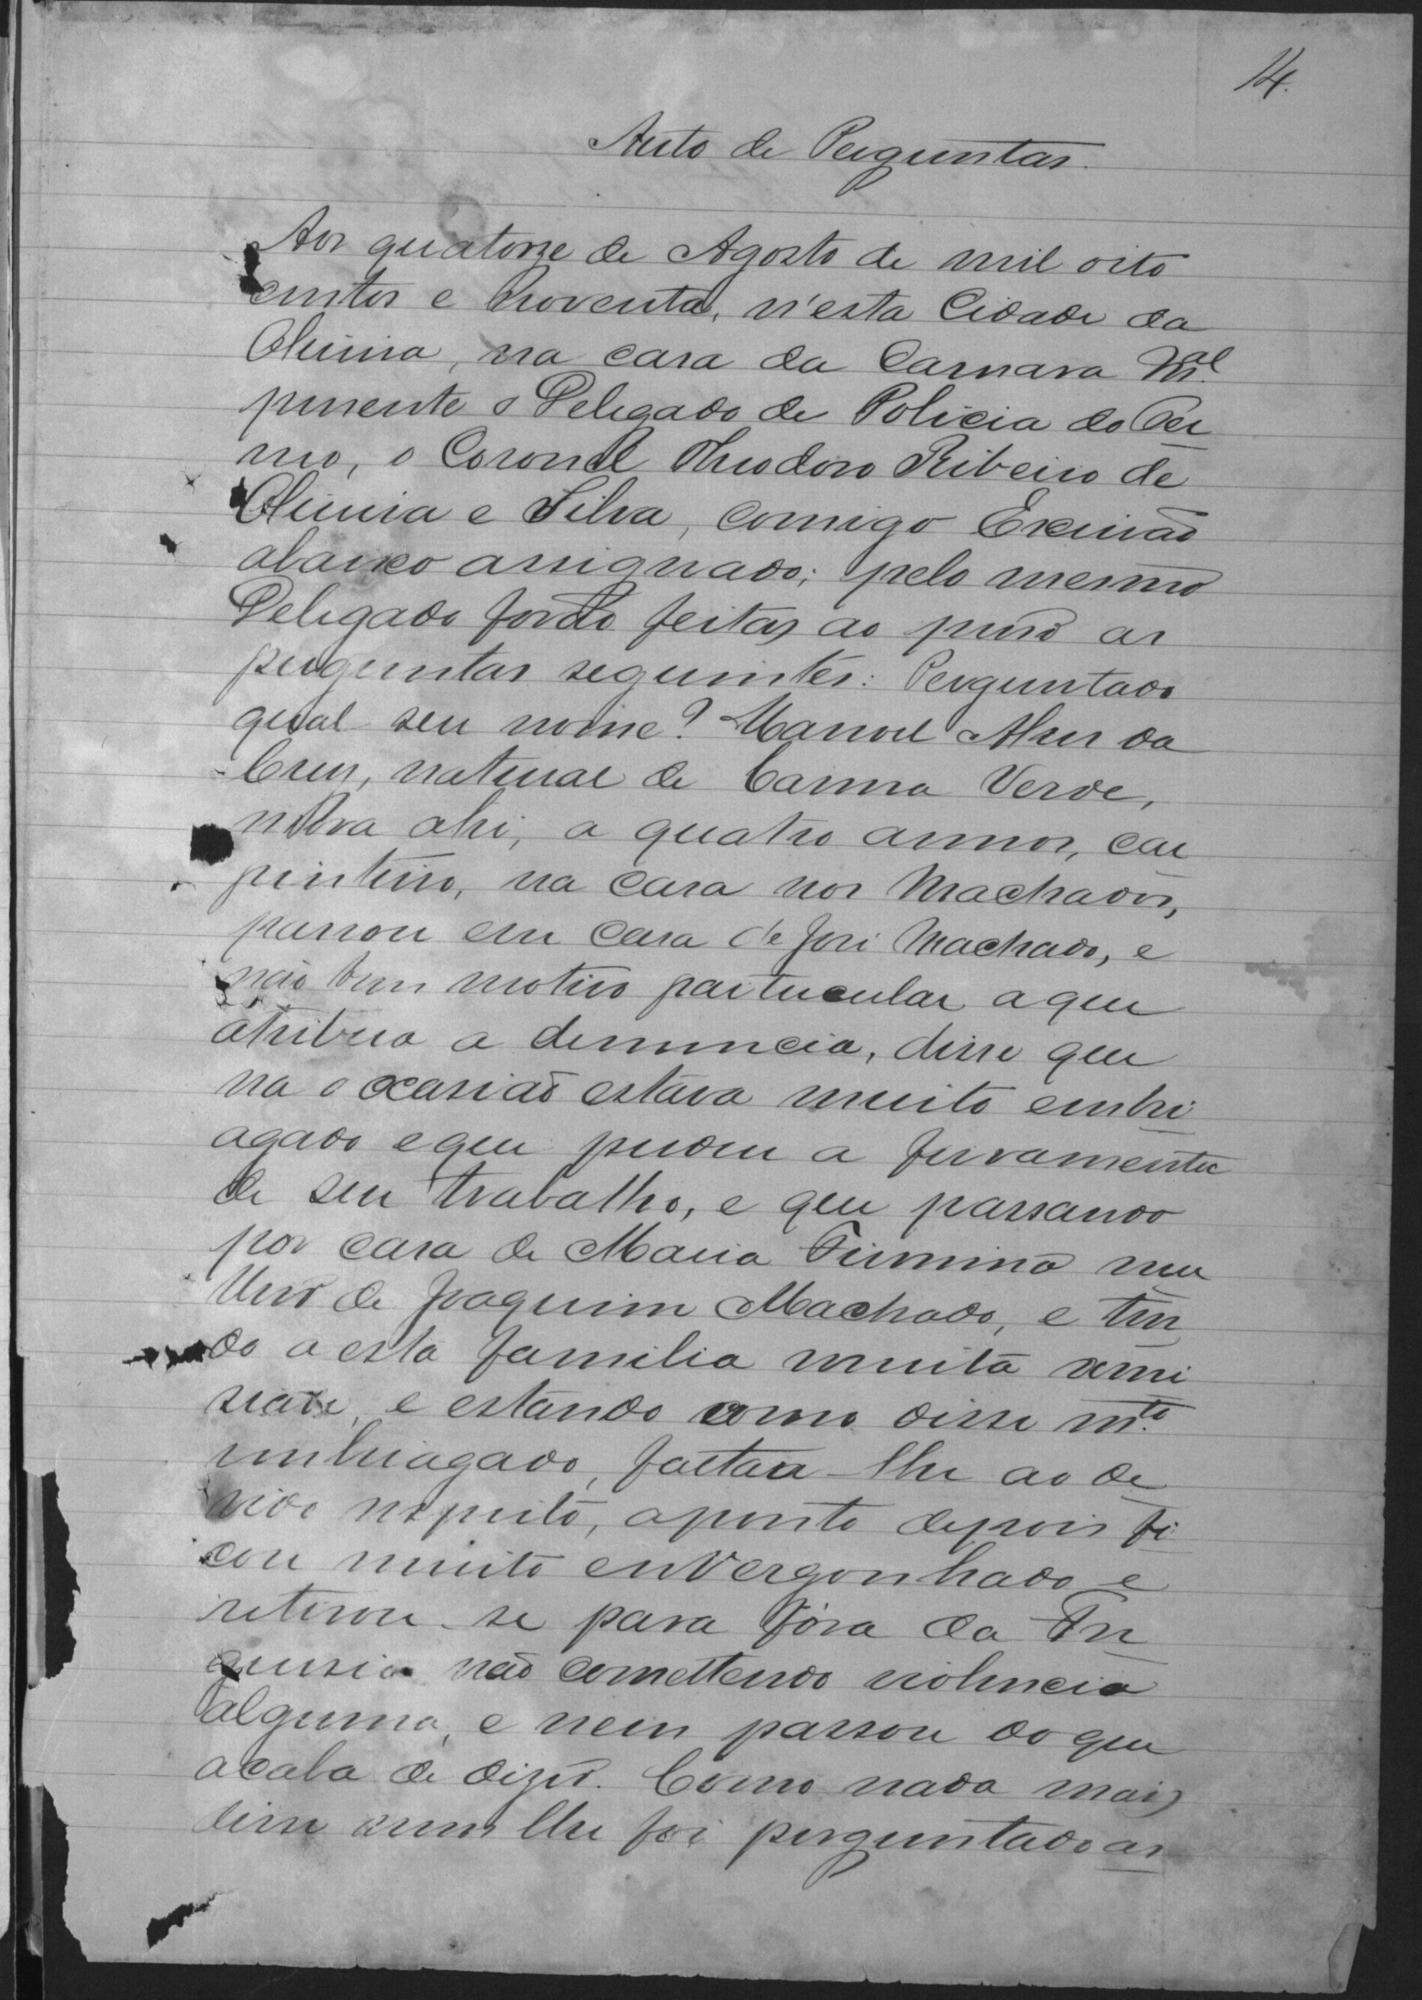 14.
Auto de Perguntas.
Aos quatorze de Agosto de mil oito
centos e noventa, n'esta Cidade da
Oliveira, na casa da Camara M.al
presente o Delegado de Policia do Ter
mo, o Coronel Theodoro Ribeiro de
Oliveira e Silva, comigo Escrivão
abaixo assignado; pelo mesmo
Delegado forão feitas ao preso as
perguntas seguintes: Perguntado
qual seu nome? Manoel Alves da
Cruz, natural de Canna Verde,
mora ahi, a quatro annos, car
pinteiro, na casa nos Machados,
passou em casa de José Machado, e
não tem motivo particular a que
atribua a denuncia, disse que
na occasião estava muito embri
agado e que perdeu a ferramenta
de seu trabalho, e que passando
por casa de Maria Firmina mu
lher de Joaquim Machado, e ten
do a esta familia muita ami
sade, e estando como disse m.to
embriagado, faltou-lhe ao de
vido respeito, aponto depois fi
cou muito envergonhado e
retirou-se para fóra da Fre
guesia não comettendo violencia
alguma, e nem passou do que
acaba de dizer. Como nada mais
disse nem lhe foi perguntado as